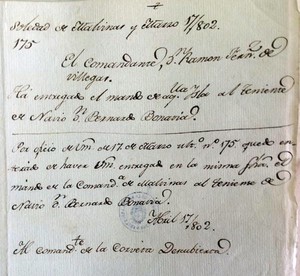 Soledad de Malvinas y Marzo 17/802.
175
El Comandante, Dn. Ramon Fern.z de
Villegas.
Ha entregado el mando de aq.lla Isla al Teniente
de Navio Dn. Bernardo Bonavia.
Por oficio de Vm. de 17 de Marzo ult.o n.o 175 quedo en-
terado de haver Vm entregado en la misma fha. el
mando de la Comand.a de Malvinas al Teniente de
Navio Dn. Bernardo Bonavia.
Abril 17/
802.
Al Comand.te de la Corveta Descubierta.